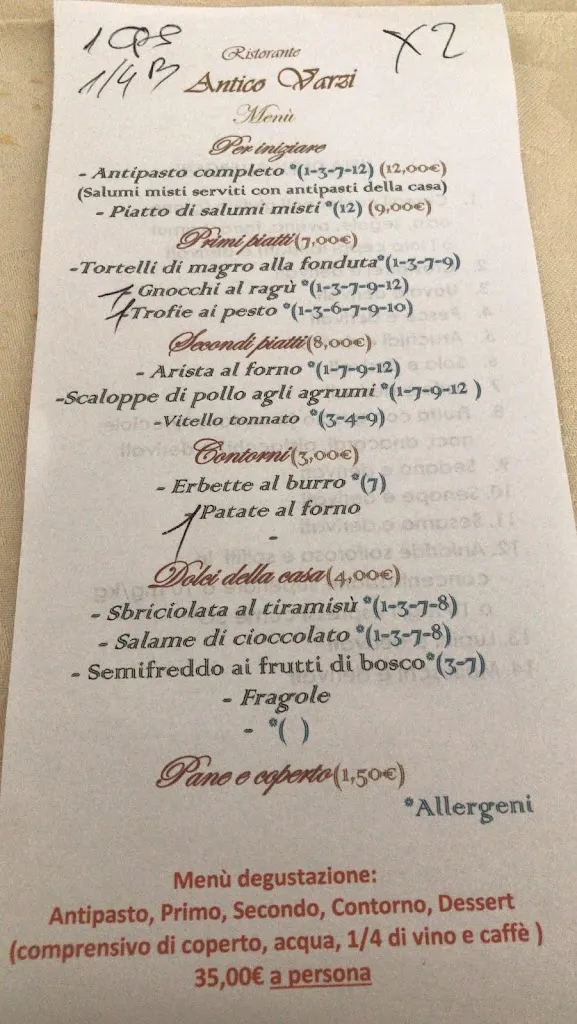 1/4 B
X2
Ristorante
Antico Varzi
Menù
Per iniziare
- Antipasto completo *(1-3-7-12) (12,00€)
(Salumi misti serviti con antipasti della casa)
- Piatto di salumi misti *(12) (9,00€)
Primi piatti (7,00€)
-Tortelli di magro alla fonduta*(1-3-7-9)
1 Gnocchi al ragù *(1-3-7-9-12)
1 Trofie ai pesto *(1-3-6-7-9-10)
Secondi piatti (8,00€)
- Arista al forno *(1-7-9-12)
-Scaloppe di pollo agli agrumi *(1-7-9-12 )
-Vitello tonnato *(3-4-9)
Contorni (3,00€)
- Erbette al burro *(7)
1 Patate al forno
-
Dolci della casa (4,00€)
- Sbriciolata al tiramisù *(1-3-7-8)
- Salame di cioccolato *(1-3-7-8)
- Semifreddo ai frutti di bosco*(3-7)
- Fragole
- *( )
Pane e coperto (1,50€)
*Allergeni
Menù degustazione:
Antipasto, Primo, Secondo, Contorno, Dessert
(comprensivo di coperto, acqua, 1/4 di vino e caffè )
35,00€ a persona